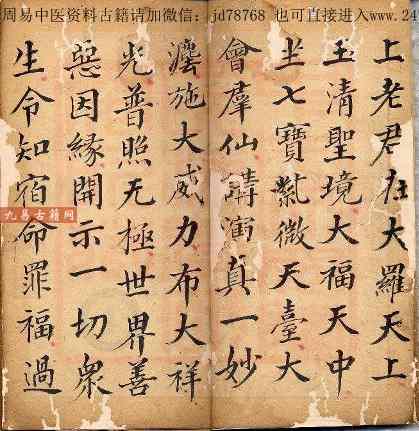 周易中医资料古籍请加微信：jd78768 也可直接进入www.24
上老君在大羅天上
玉清聖境大福天中
坐七寶紫微天臺大
會羣仙講演真一妙
瀍施大威力布大祥
光普照无極世界善
惡因緣開示一切衆
生令知宿命罪福過
九易古籍网